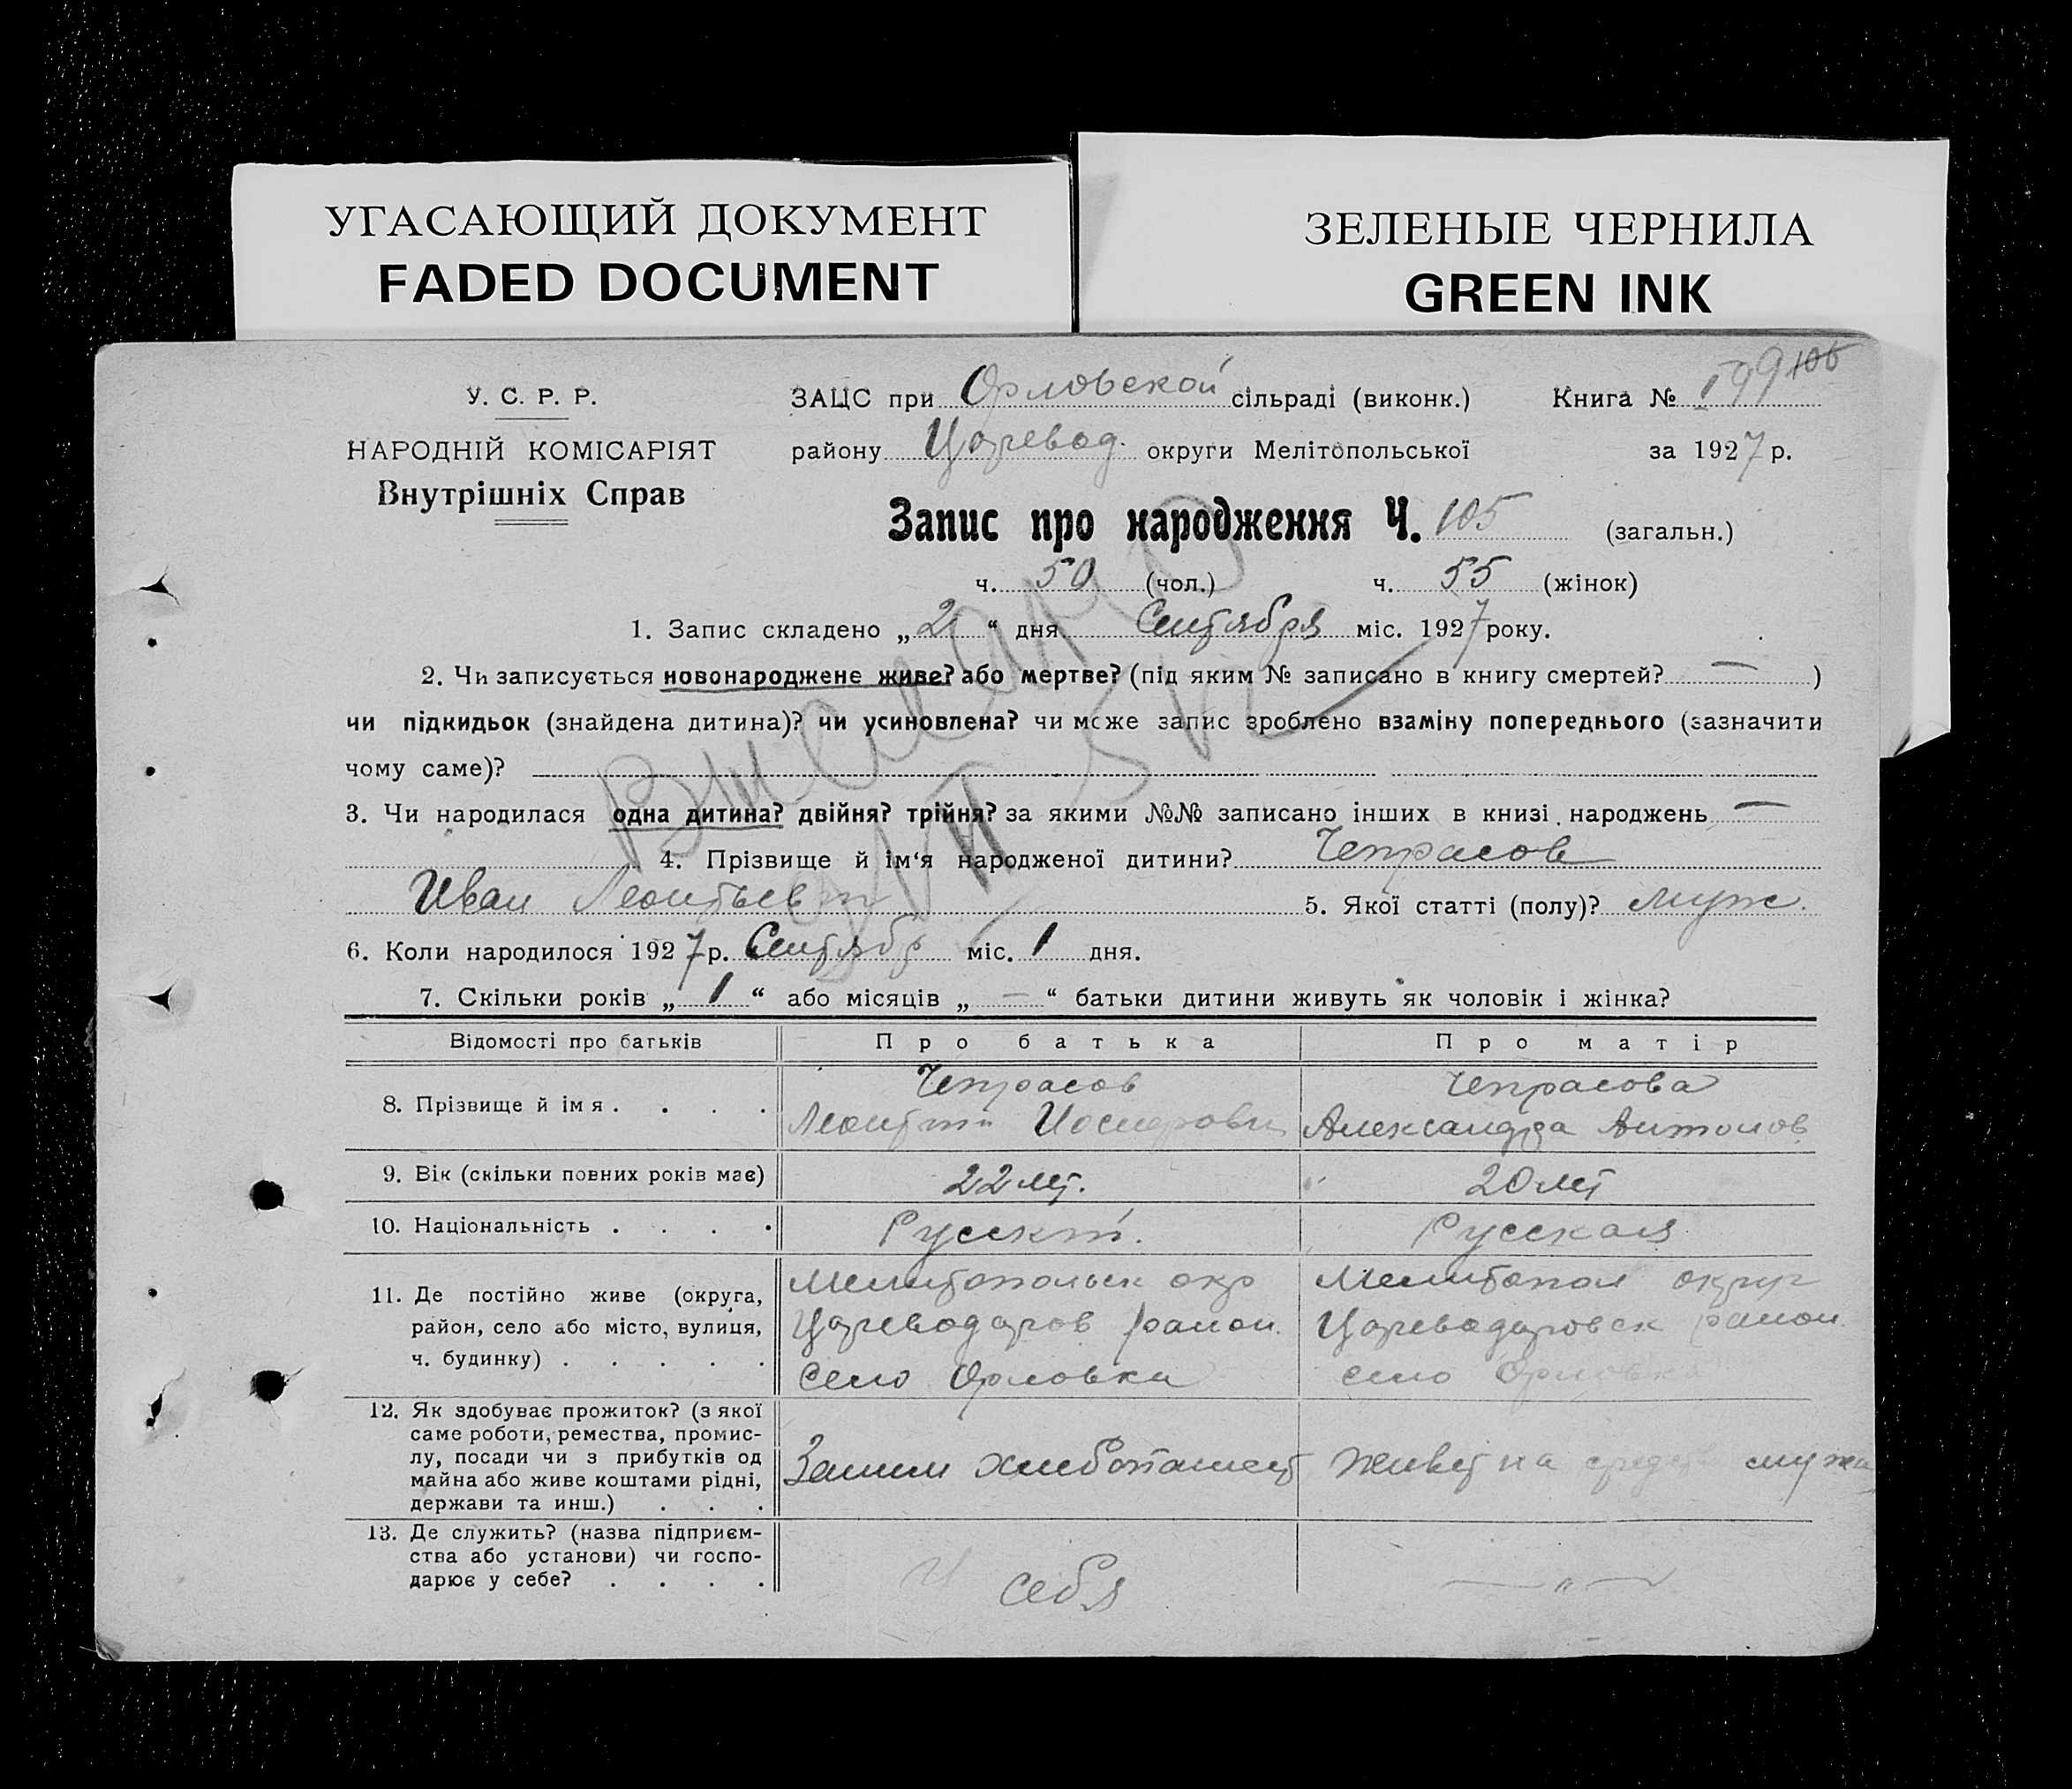 УГАСАЮЩИЙ ДОКУМЕНТ
FADED DOCUMENT
ЗЕЛЕНЫЕ ЧЕРНИЛА
GREEN INK
У. С. Р. Р.
НАРОДНІЙ КОМІСАРІЯТ
Внутрішніх Справ
ЗАЦС при Орловской сільраді (виконк.) Книга № 199 105
району Царевод. округи Мелітопольської за 1927 р.
Запис про народження Ч. 105 (загальн.)
ч. 50 (чол.) ч. 55 (жінок)
1. Запис складено „2“ дня Сентября міс. 1927 року.
2. Чи записується новонароджене живе? або мертве? (під яким № записано в книгу смертей? — )
чи підкидьок (знайдена дитина)? чи усиновлена? чи може запис зроблено взаміну попереднього (зазначити
чому саме)?
3. Чи народилася одна дитина? двійня? трійня? за якими №№ записано інших в книзі народжень —
4. Прізвище й ім‘я народженої дитини? Чепрасов
Иван Леонтьев 5. Якої статті (полу)? муж.
6. Коли народилося 1927 р. Сентябр міс. 1 дня.
7. Скільки років „ 1 “ або місяців „ — “ батьки дитини живуть як чоловік і жінка?
Відомості про батьків Про батька Про матір
8. Прізвище й імя . . . . Чепрасов Чепрасова
Леонтий Иосифович Александра Антонов
9. Вік (скільки повних років має) 22 лет. 20 лет
10. Національність . . . . Русский. Русская
11. Де постійно живе (округа, Мелитопольск окр Мелитопол округ
район, село або місто, вулиця, Цареводаров район. Цареводаровск район
ч. будинку) . . . . . село Орловка село Орловка
12. Як здобуває прожиток? (з якої
саме роботи, ремества, промис-
лу, посади чи з прибутків од
майна або живе коштами рідні,
держави та инш.) . . . хлебопашест Живет на средст мужа
13. Де служить? (назва підприєм-
ства або установи) чи госпо-
дарює у себе? . . . . У себя — „ —